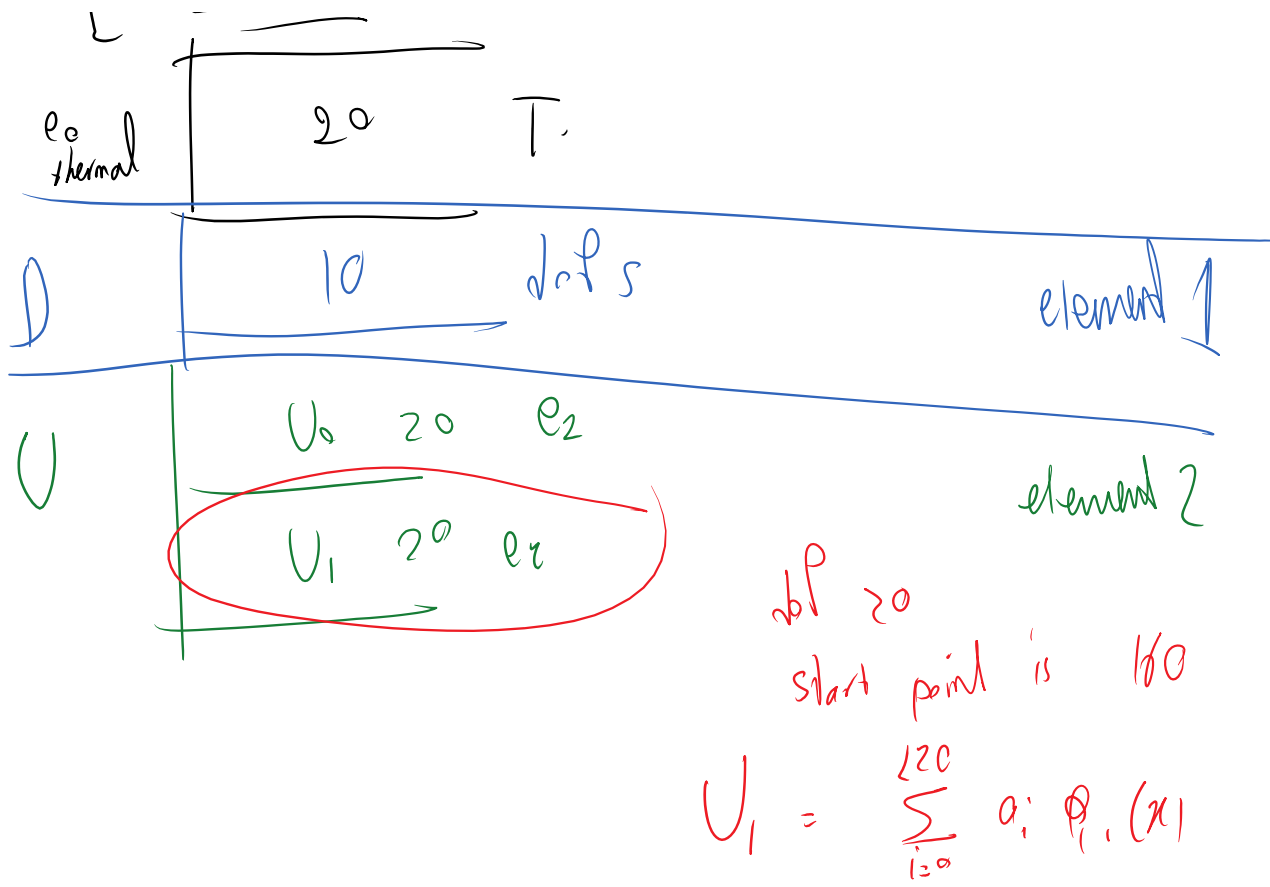 L
e0 20 T.
thermal
D 10 dofs element 1
U U0 20 e2
element 2
U1 20 e2
dof 20
start point is
U1 = <20 ∑ i=0 ai φi (x)